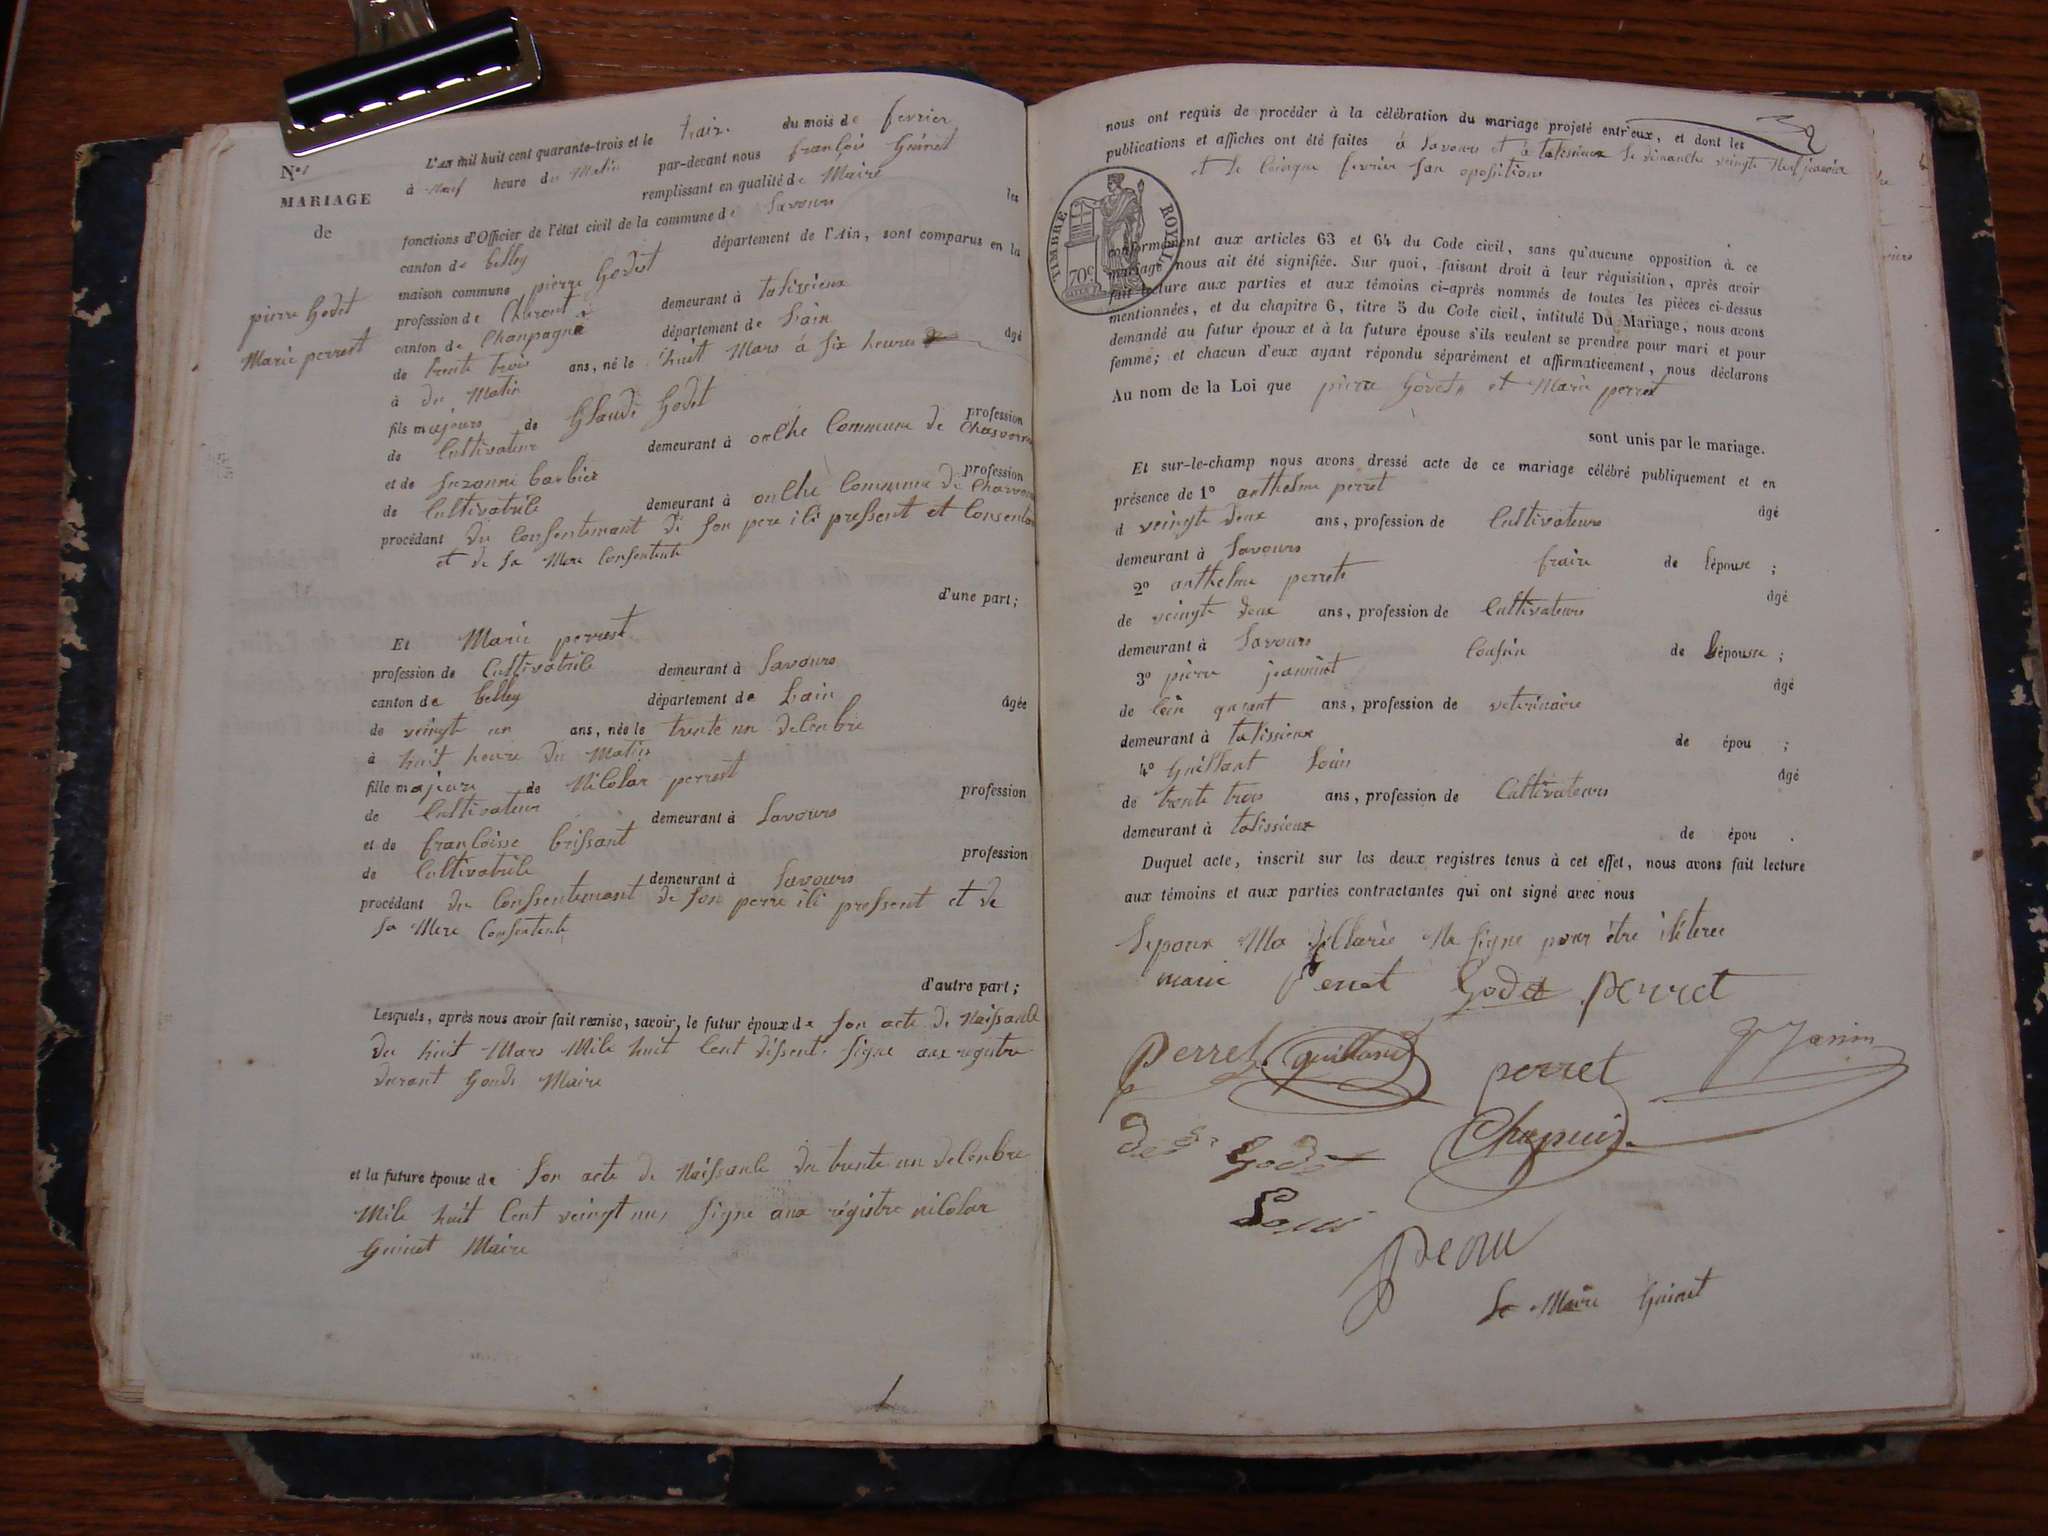 N.° 1
MARIAGE
de
pierre Godet
Marie perrest
L'an mil huit cent quarante-trois et le traize du mois de fevrier
à Neuf heure du Matin par-devant nous françois Guinet
remplissant en qualité de Maire les
fonctions d'Officier de l'état civil de la commune de Savours
canton de belley département de l'Ain, sont comparus en la
maison commune pierre Godet
profession de Charont demeurant à talissieux
canton de Champagne département de Lain âgé
de trente trois ans, né le huit Mars à six heures
à du Matin
fils majeure de Glaude Godet profession
de Cultivateur demeurant à onche Commune de
et de Suzanne barbier profession
de Cultivatrice demeurant à onche Commune de
procédant du Consentemant de son pere ici pressent et Consentant
et de sa Mere Consentente
d'une part;
Et Marie perrest
profession de Cultivatrice demeurant à Savours
canton de belley département de Lain âgée
de veingt un ans, née le trente un decenbre
à huit heure du Matin
fille majeure de Nicolas perrest profession
de Cultivateur demeurant à Savours
et de françoisse brissant profession
de Cultivatrice demeurant à Savours
procédant du Conssentemant de son perre ici pressent et de
sa Mere Consentente
d'autre part;
Lesquels, après nous avoir fait remise, savoir, le futur époux de son acte de Naissance
du huit Mars Mile huit Cent dissent signe aux registre
durant Maire
et la future épouse de son acte de Naissance du trente un decenbre
Mile huit Cent veingt un, signe aux régistre nicolas
Guinet Maire
nous ont requis de procéder à la célébration du mariage projeté entr'eux, et dont les
publications et affiches ont été faites à Savours et à talissieux le dimanche veingte Neuf janvier
et le Cainque fevrier san opositions
TIMBRE ROYAL
70 c
conformément aux articles 63 et 64 du Code civil, sans qu'aucune opposition à ce
mariage nous ait été signifiée. Sur quoi, faisant droit à leur réquisition, après avoir
fait lecture aux parties et aux témoins ci-après nommés de toutes les pièces ci-dessus
mentionnées, et du chapitre 6, titre 5 du Code civil, intitulé Du Mariage, nous avons
demandé au futur époux et à la future épouse s'ils veulent se prendre pour mari et pour
femme; et chacun d'eux ayant répondu séparément et affirmativement, nous déclarons
Au nom de la Loi que pierre Godet et Marie perrest
sont unis par le mariage.
Et sur-le-champ nous avons dressé acte de ce mariage célébré publiquement et en
présence de 1° anthelme perret âgé
d veingte deux ans, profession de Cultivateurs
demeurant à Savours fraire de l'épouse;
2° anthelme perrete âgé
de veingte deux ans, profession de Cultivateurs
demeurant à Savours Cousin de Lépouse;
3° pierre jeannint âgé
de ans, profession de veterinaire
demeurant à talissieux de épou;
4° Guillant Louis âgé
de trente trois ans, profession de Cultivateurs
demeurant à talissieux de épou.
Duquel acte, inscrit sur les deux registres tenus à cet effet, nous avons fait lecture
aux témoins et aux parties contractantes qui ont signé avec nous
Lepoux Ma Ne signe pour être
marie Perret Godet perret
Perret guilland perret Janin
Godet Chapuis
Louis
Le Maire Guinet